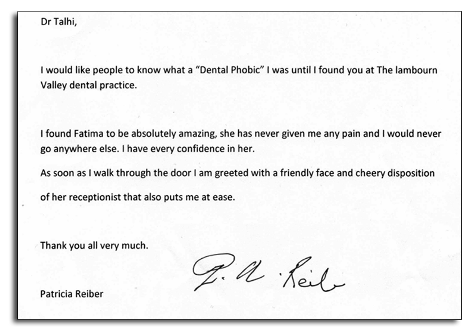 Dr Talhi,
I would like people to know what a “Dental Phobic” I was until I found you at The lambourn
Valley dental practice.
I found Fatima to be absolutely amazing, she has never given me any pain and I would never
go anywhere else. I have every confidence in her.
As soon as I walk through the door I am greeted with a friendly face and cheery disposition
of her receptionist that also puts me at ease.
Thank you all very much.
P. A. Reiber
Patricia Reiber